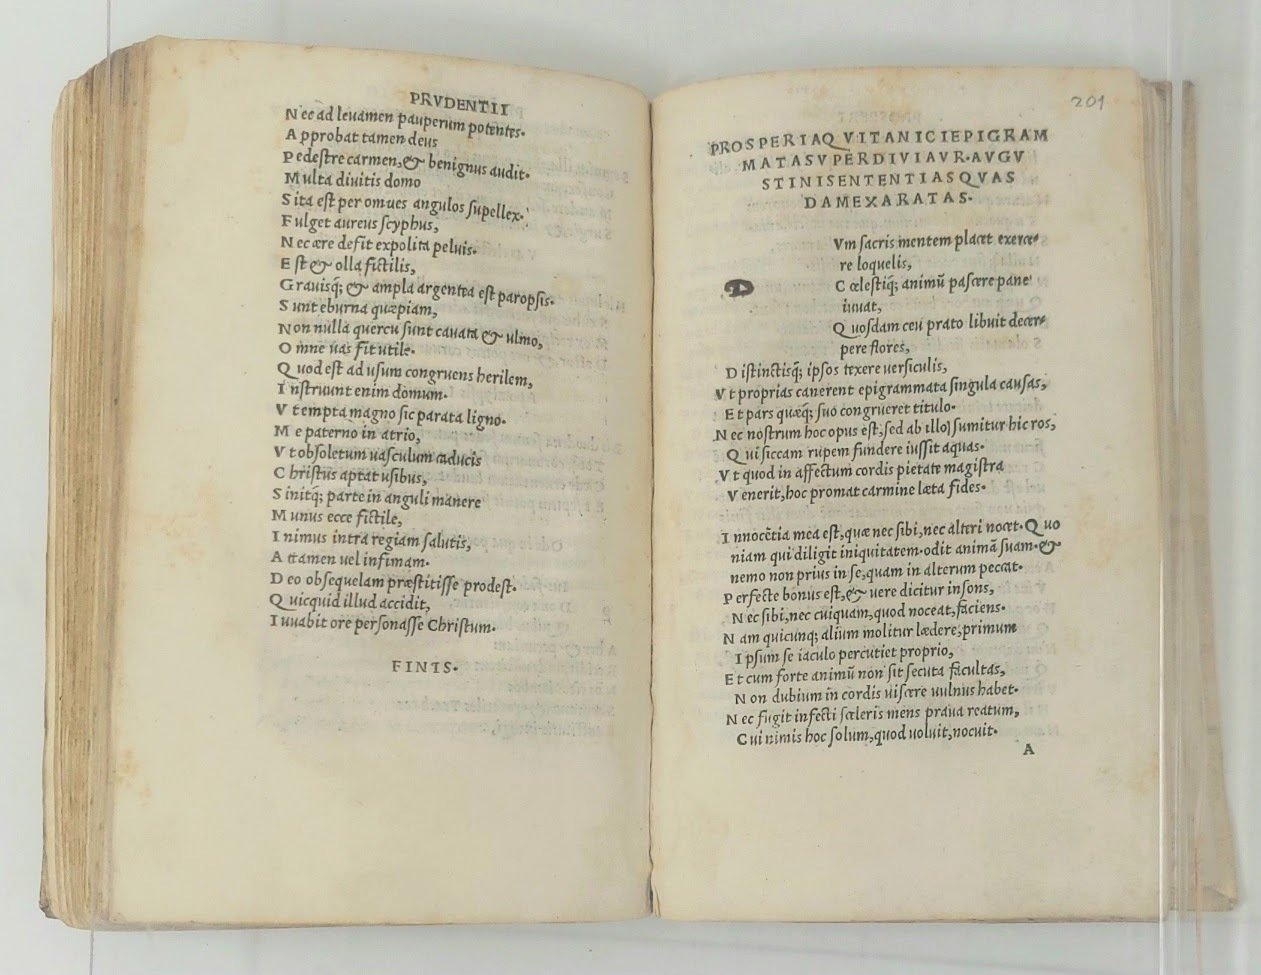 PRVDENTII
N ec ad leuamen pauperum potentes.
A pprobat tamen deus
P edestre carmen, & benignus audit.
M ulta diuitis domo
S ita est per omues angulos supellex.
F ulget aureus scyphus,
N ec ære defit expolita peluis.
E st & olla fictilis,
G rauisq; & ampla argentea est paropsis.
S unt eburna quæpiam,
N on nulla quercu sunt cauata & ulmo,
O mne uas fit utile.
Q uod est ad usum congruens herilem,
I nstruunt enim domum.
V t empta magno sic parata ligno.
M e paterno in atrio,
V t obsoletum uasculum caducis
C hristus aptat usibus,
S initq; parte in anguli manere
M unus ecce fictile,
I nimus intra regiam salutis,
A ttamen uel infimam.
D eo obsequelam præstitisse prodest.
Q uicquid illud accidit,
I uuabit ore personasse Christum.
FINIS.
201
PROSPERI AQVITANICI EPIGRAM
MATA SVPER DIVI AVR. AVGV
STINI SENTENTIAS QVAS
DAM EXARATAS.
D
Vm sacris mentem placet exerce-
re loquelis,
C œlestiq; animū pascere pane
iuuat,
Q uosdam ceu prato libuit decer-
pere flores,
D istinctisq; ipsos texere uersiculis,
V t proprias canerent epigrammata singula causas,
E t pars quæq; suo congrueret titulo.
N ec nostrum hoc opus est, sed ab illo) sumitur hic ros,
Q ui siccam rupem fundere iussit aquas.
V t quod in affectum cordis pietate magistra
V enerit, hoc promat carmine læta fides.
I nnocētia mea est, quæ nec sibi, nec alteri nocet. Q uo
niam qui diligit iniquitatem. odit animā suam. &
nemo non prius in se, quam in alterum peccat.
P erfecte bonus est, & uere dicitur insons,
N ec sibi, nec cuiquam, quod noceat, faciens.
N am quicunq; alium molitur lædere, primum
I psum se iaculo percutiet proprio,
E t cum forte animū non sit secuta facultas,
N on dubium in cordis uiscere uulnus habet.
N ec fugit infecti sceleris mens praua reatum,
C ui nimis hoc solum, quod uoluit, nocuit.
A